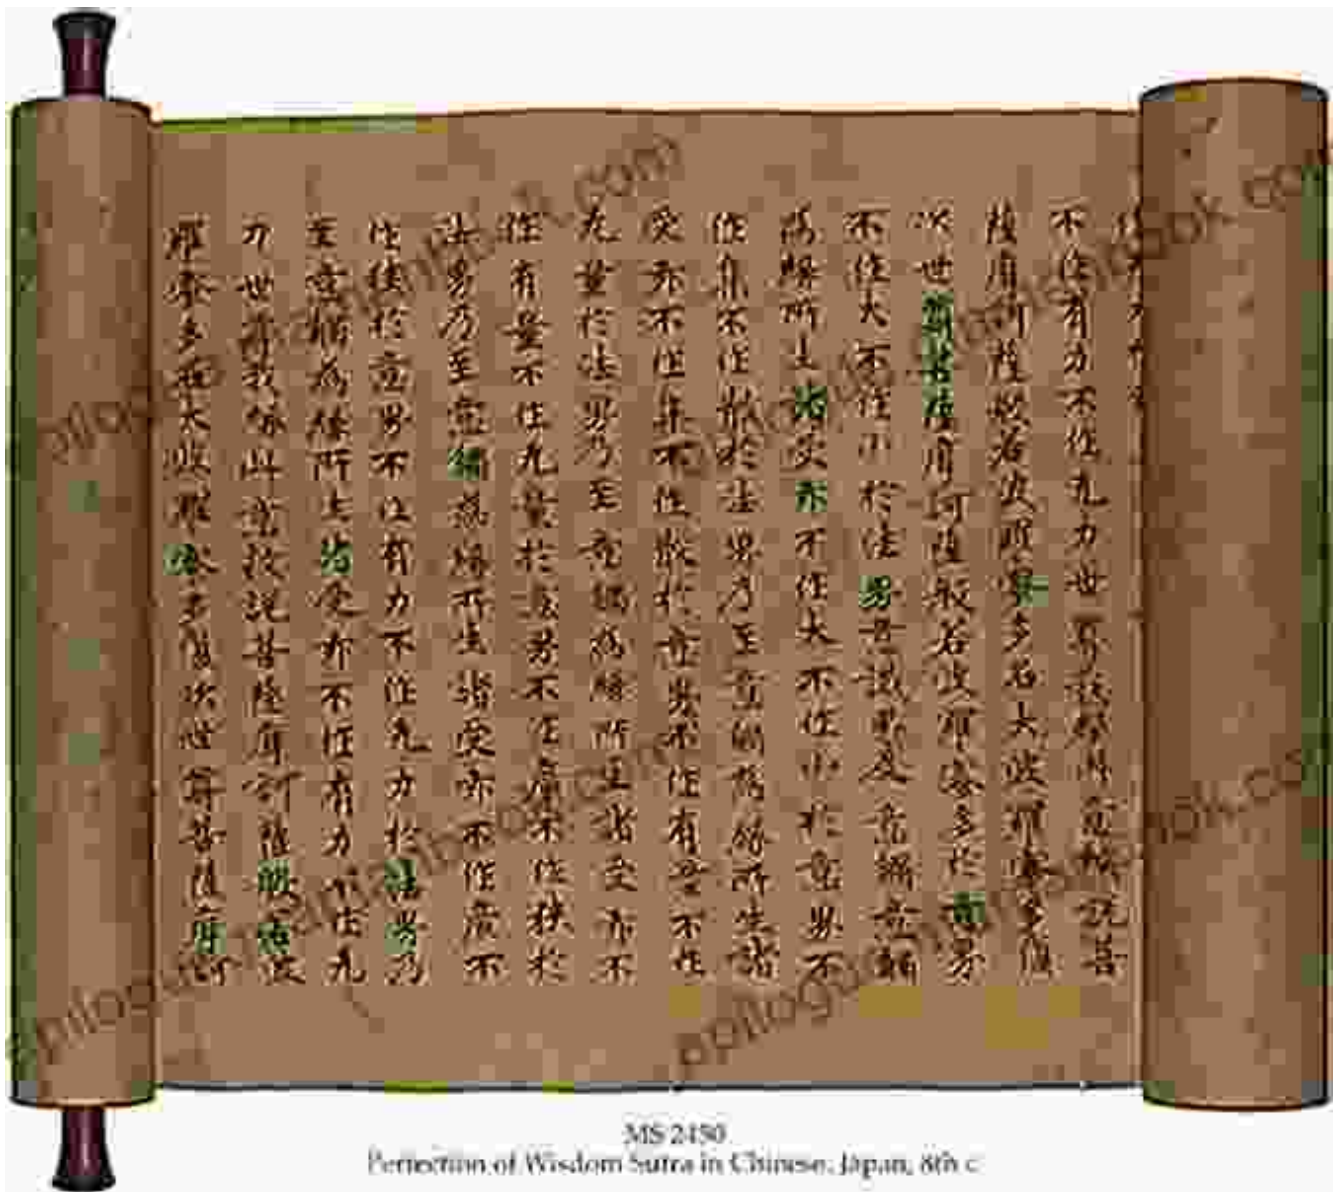 不作有力不作无力世尊我緣此意故說菩
薩摩訶薩般若波羅蜜多名大波羅蜜多復
次世尊若菩薩摩訶薩般若波羅蜜多於意界
不作大不作小於法界意識界及意觸意觸
為緣所生諸受亦不作大不作小於意界不
作集不作散於法界乃至意觸為緣所生諸
受亦不作集不作散於意界不作有量不作
无量於法界乃至意觸為緣所生諸受亦不
作有量不作无量於意界不作廣不作狹於
法界乃至意觸為緣所生諸受亦不作廣不
作狹於意界不作有力不作无力於法界乃
至意觸為緣所生諸受亦不作有力不作无
力世尊我緣此意故說菩薩摩訶薩般若波
羅蜜多名大波羅蜜多復次世尊若菩薩摩訶
MS 2480
Perfection of Wisdom Sutra in Chinese. Japan, 8th c